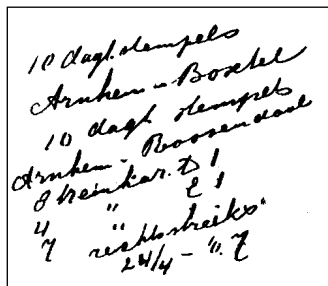 10 dagt. stempels
Arnhem - Boxtel
10 dagt stempels
Arnhem - Roosendaal
8 treinkar. D 1
4 " E 1
7 rechtstreiks"
24/4 - ". 7